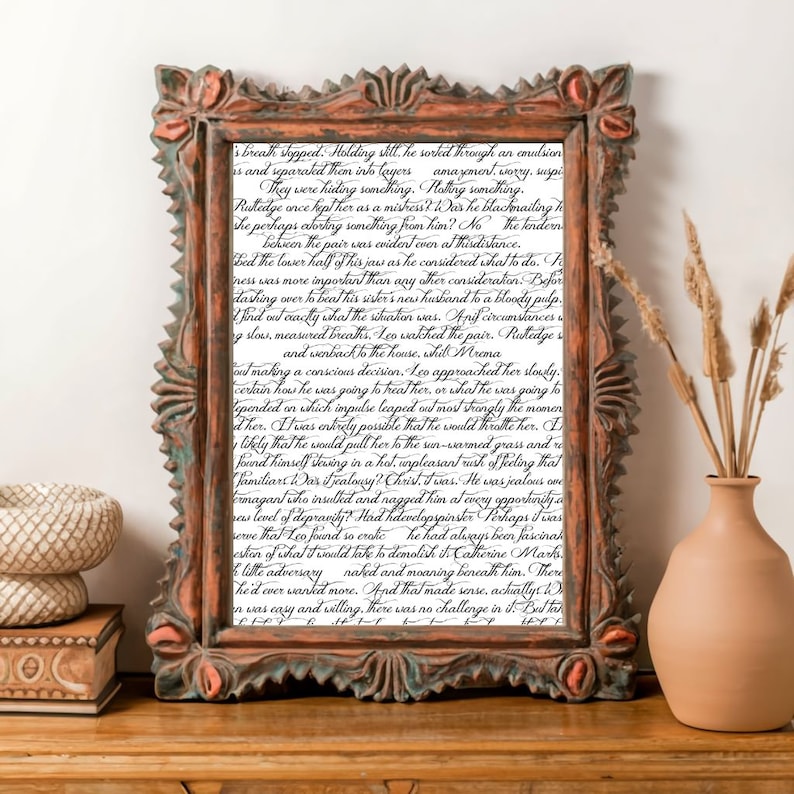 s breath stopped. Holding still, he sorted through an emulsion
ns and separated them into layers amazement, worry, suspi
They were hiding something. Plotting something.
Rutledge once kept her as a mistress? Was he blackmailing h
she perhaps extorting something from him? No the tendern
between the pair was evident even at thisdistance.
bbed the lower half of his jaw as he considered what to do. Po
iness was more important than any other consideration. Befor
dashing over to beat his sister's new husband to a bloody pulp,
d find out exactly what the situation was. And if circumstances w
ng slow, measured breaths, Leo watched the pair. Rutledge s
and wenback to the house, whil Mrema
out making a conscious decision, Leo approached her slowly.
certain how he was going to treat her, or what he was going to
depended on which impulse leaped out most strongly the momen
d her. It was entirely possible that he would throttle her. I
y likely that he would pull her to the sun-warmed grass and r
found himself stewing in a hot, unpleasant rush of feeling that
familiar. Was it jealousy? Christ, it was. He was jealous ove
ermagant who insulted and nagged him at every opportunity.
new level of depravity? Had hdevelopspinster Perhaps it was
serve that Leo found so erotic he had always been fascinat
estion of what it would take to demolish it. Catherine Marks,
h little adversary naked and moaning beneath him. There
he'd ever wanted more. And that made sense, actually: W
n was easy and willing, there was no challenge in it. But tak